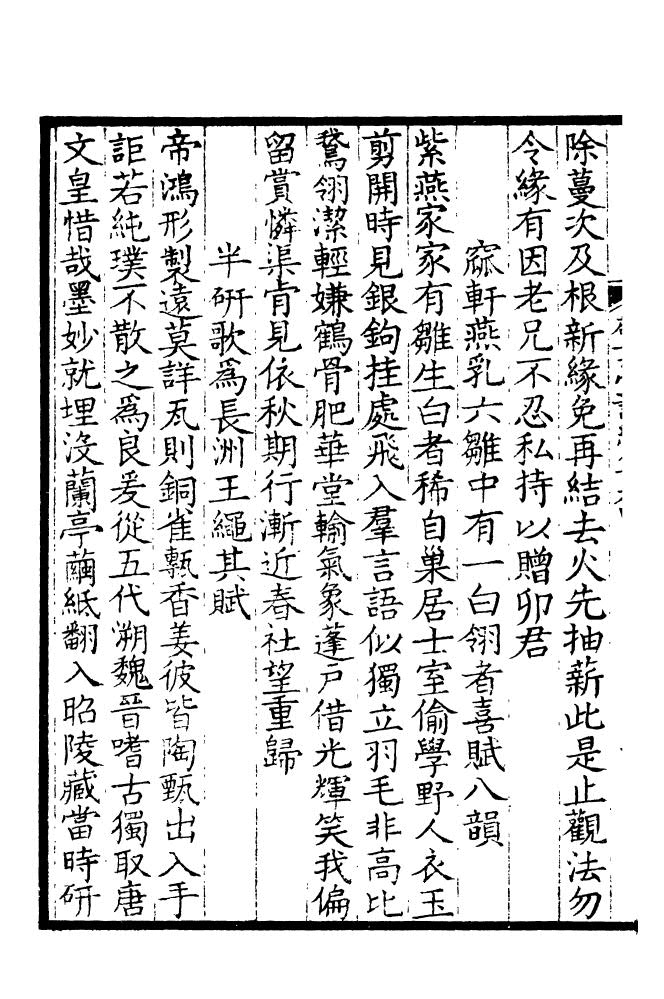 除蔓次及根新緣免再結去火先抽薪此是止觀法勿
令緣有因老兄不忍私持以贈卯君
窳軒燕乳六雛中有一白翎者喜賦八韻
紫燕家家有雛生白者稀自巢居士室偷學野人衣玉
剪開時見銀鉤挂處飛入羣言語似獨立羽毛非高比
鶩翎潔輕嫌鶴骨肥華堂輸氣象蓬戸借光輝笑我偏
留賞憐渠肯見依秋期行漸近春社望重歸
半硏歌爲長洲王繩其賦
帝鴻形製遠莫詳瓦則銅雀甎香姜彼皆陶甄出入手
詎若純璞不散之爲良爰從五代溯魏晉嗜古獨取唐
文皇惜哉墨妙就埋沒蘭亭繭紙翻入昭陵藏當時硏